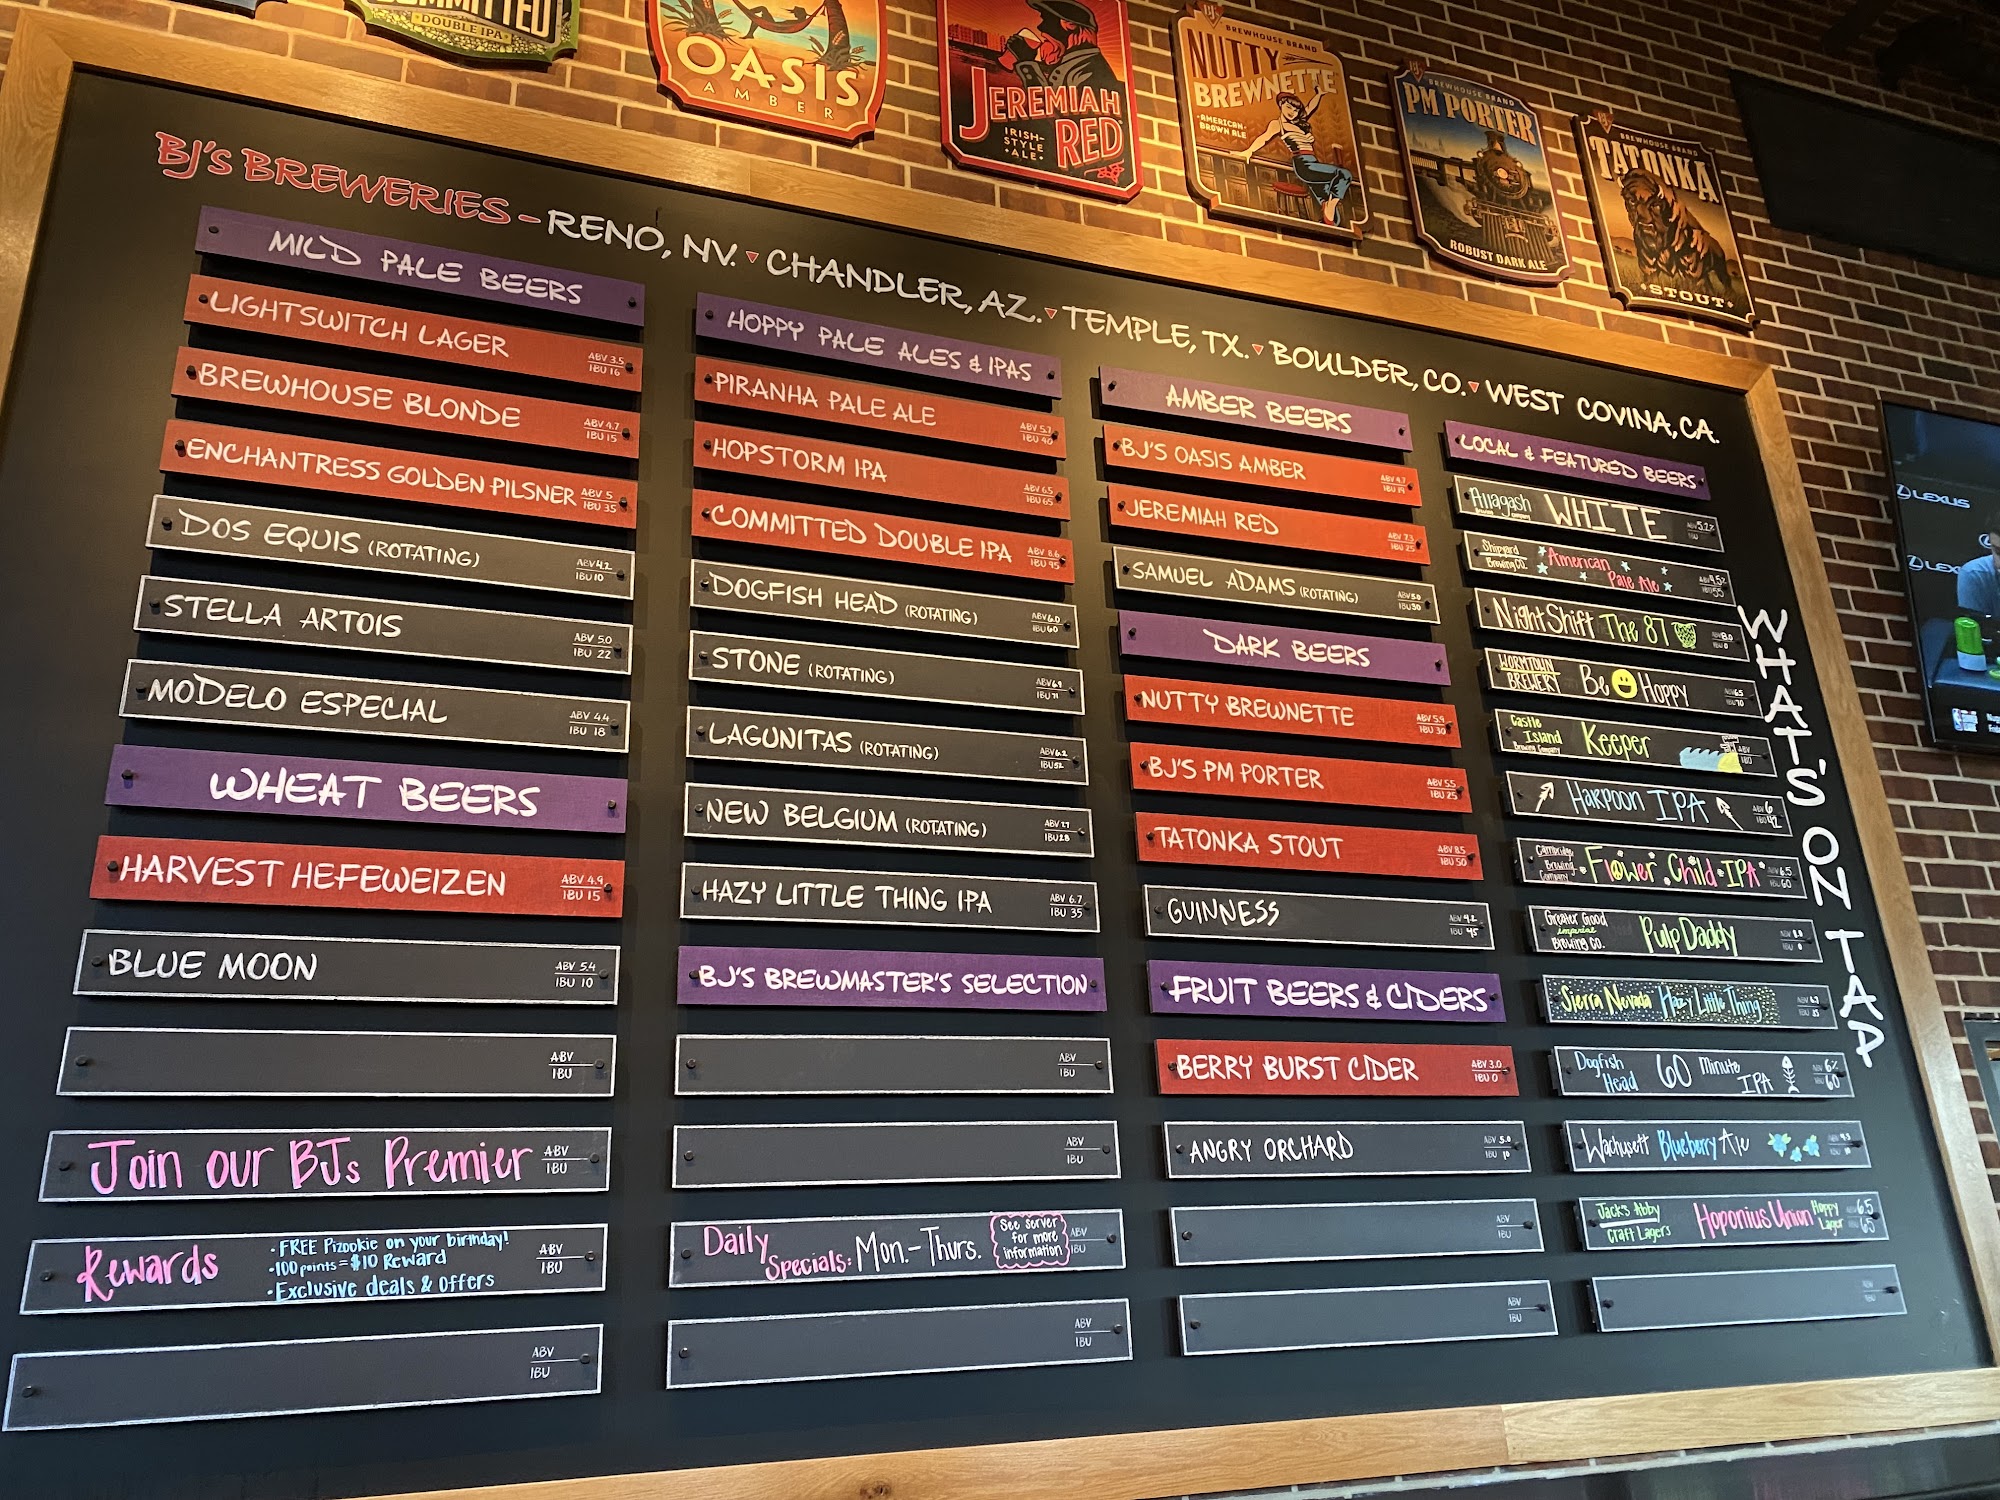 COMMITTED
DOUBLE IPA
OASIS
AMBER
JEREMIAH
RED
IRISH-
STYLE
ALE
BREWHOUSE BRAND
NUTTY
BREWNETTE
AMERICAN
BROWN ALE
BREWHOUSE BRAND
PM PORTER
ROBUST DARK ALE
BREWHOUSE BRAND
TATONKA
STOUT
BJ'S BREWERIES - RENO, NV. CHANDLER, AZ. TEMPLE, TX. BOULDER, CO. WEST COVINA, CA.
MILD PALE BEERS
LIGHTSWITCH LAGER ABV 3.5
IBU 16
BREWHOUSE BLONDE ABV 4.7
IBU 15
ENCHANTRESS GOLDEN PILSNER ABV 5
IBU 35
DOS EQUIS (ROTATING) ABV 4.2
IBU 10
STELLA ARTOIS ABV 5.0
IBU 22
MODELO ESPECIAL ABV 4.4
IBU 18
WHEAT BEERS
HARVEST HEFEWEIZEN ABV 4.9
IBU 15
BLUE MOON ABV 5.4
IBU 10
ABV
IBU
Join our BJs Premier ABV
IBU
Rewards
• FREE Pizookie on your birthday!
• 100 points = $10 Reward
• Exclusive deals & offers
ABV
IBU
ABV
IBU
HOPPY PALE ALES & IPAS
PIRANHA PALE ALE ABV 5.7
IBU 40
HOPSTORM IPA ABV 6.5
IBU 65
COMMITTED DOUBLE IPA ABV 8.6
IBU 95
DOGFISH HEAD (ROTATING) ABV 6.0
IBU 60
STONE (ROTATING) ABV 6.9
IBU 71
LAGUNITAS (ROTATING) ABV 6.2
IBU 52
NEW BELGIUM (ROTATING) ABV
IBU 28
HAZY LITTLE THING IPA ABV 6.7
IBU 35
BJ'S BREWMASTER'S SELECTION
ABV
IBU
ABV
IBU
Daily
Specials: Mon.-Thurs.
See server
for more
information
ABV
IBU
ABV
IBU
AMBER BEERS
BJ'S OASIS AMBER ABV 4.7
IBU 19
JEREMIAH RED ABV 7.3
IBU 25
SAMUEL ADAMS (ROTATING) ABV 5.0
IBU 30
DARK BEERS
NUTTY BREWNETTE ABV 5.9
IBU 30
BJ'S PM PORTER ABV 5.5
IBU 25
TATONKA STOUT ABV 8.5
IBU 50
GUINNESS ABV 4.2
IBU 45
FRUIT BEERS & CIDERS
BERRY BURST CIDER ABV 3.0
IBU 0
ANGRY ORCHARD ABV 5.0
IBU 10
ABV
IBU
ABV
IBU
LOCAL & FEATURED BEERS
Allagash
Brewing
Company
WHITE
ABV 5.2%
IBU
Shipyard
Brewing Co.
American
Pale Ale
IBU 55
Night Shift The 87 ABV 8.0
IBU 0
WORMTOWN
BREWERY
Be Hoppy
ABV 6.5
IBU 70
Castle
Island
Brewing Company
Keeper
ABV
IBU
Harpoon IPA ABV 6
IBU 42
Cambridge
Brewing
Company
Flower Child IPA
ABV 6.5
IBU 60
Greater Good
imperial
Brewing Co.
Pulp Daddy
ABV 8.0
IBU 0
Sierra Nevada Hazy Little Thing
Dogfish
Head
60 Minute
IPA
ABV 6%
IBU 60
Wachusett Blueberry Ale
Jack's Abby
Craft Lagers
Hoponius Union
Hoppy
Lager
ABV 6.5
IBU 65
WHAT'S ON TAP
LEXUS